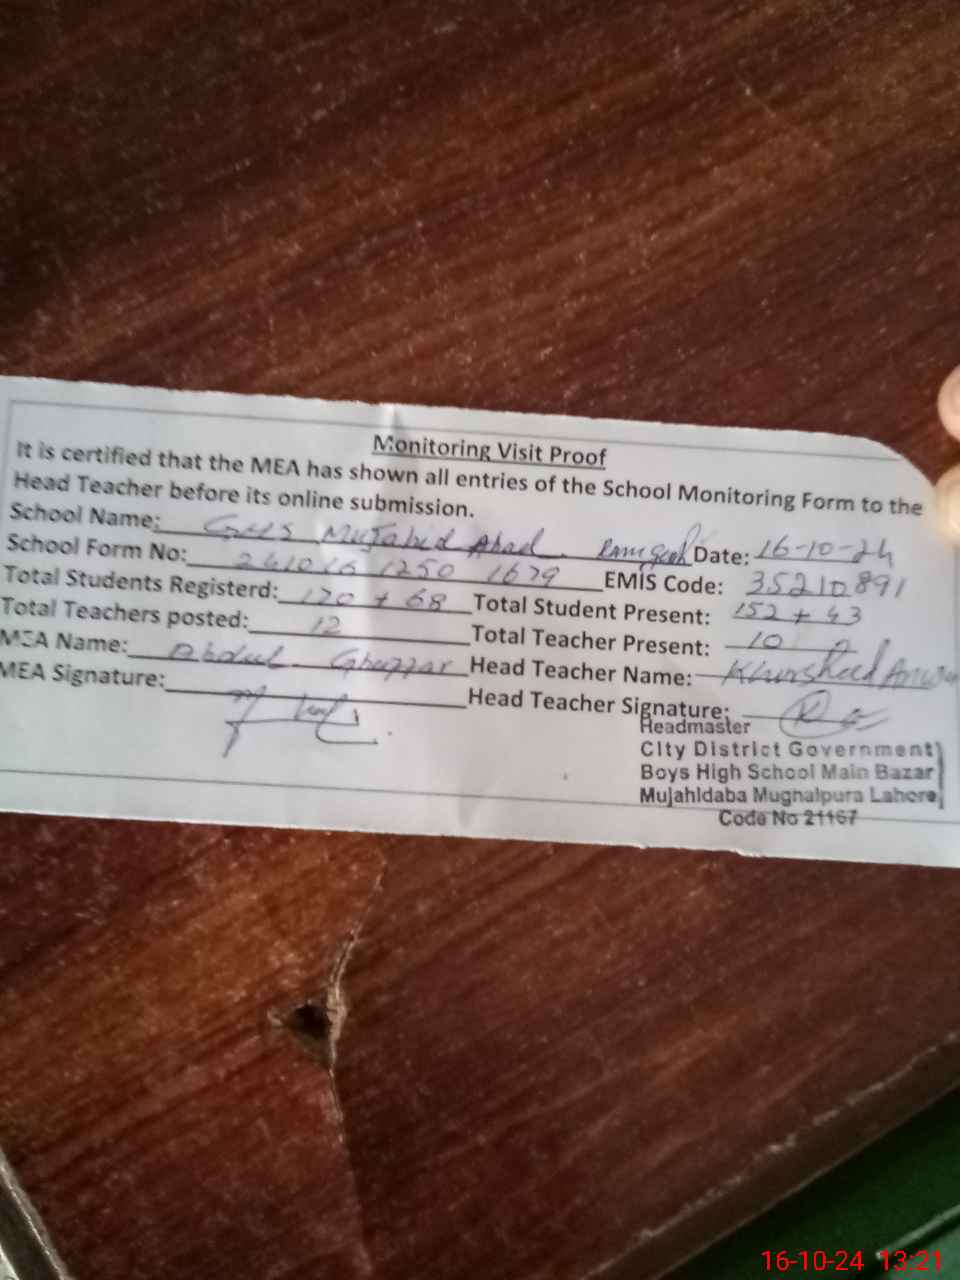 Monitoring Visit Proof
It is certified that the MEA has shown all entries of the School Monitoring Form to the
Head Teacher before its online submission.
School Name: GHS Mujahid Abad Date: 16-10-24
School Form No: 241016 1250 1679 EMIS Code: 35210891
Total Students Registerd: 170 + 68 Total Student Present: 152 + 43
Total Teachers posted: 12 Total Teacher Present: 10
MEA Name: Abdul Ghaffar Head Teacher Name: Khursheed Anwar
MEA Signature: Head Teacher Signature:
Headmaster
City District Government
Boys High School Main Bazar
Mujahidaba Mughalpura Lahore
Code No 21167
16-10-24 13:21